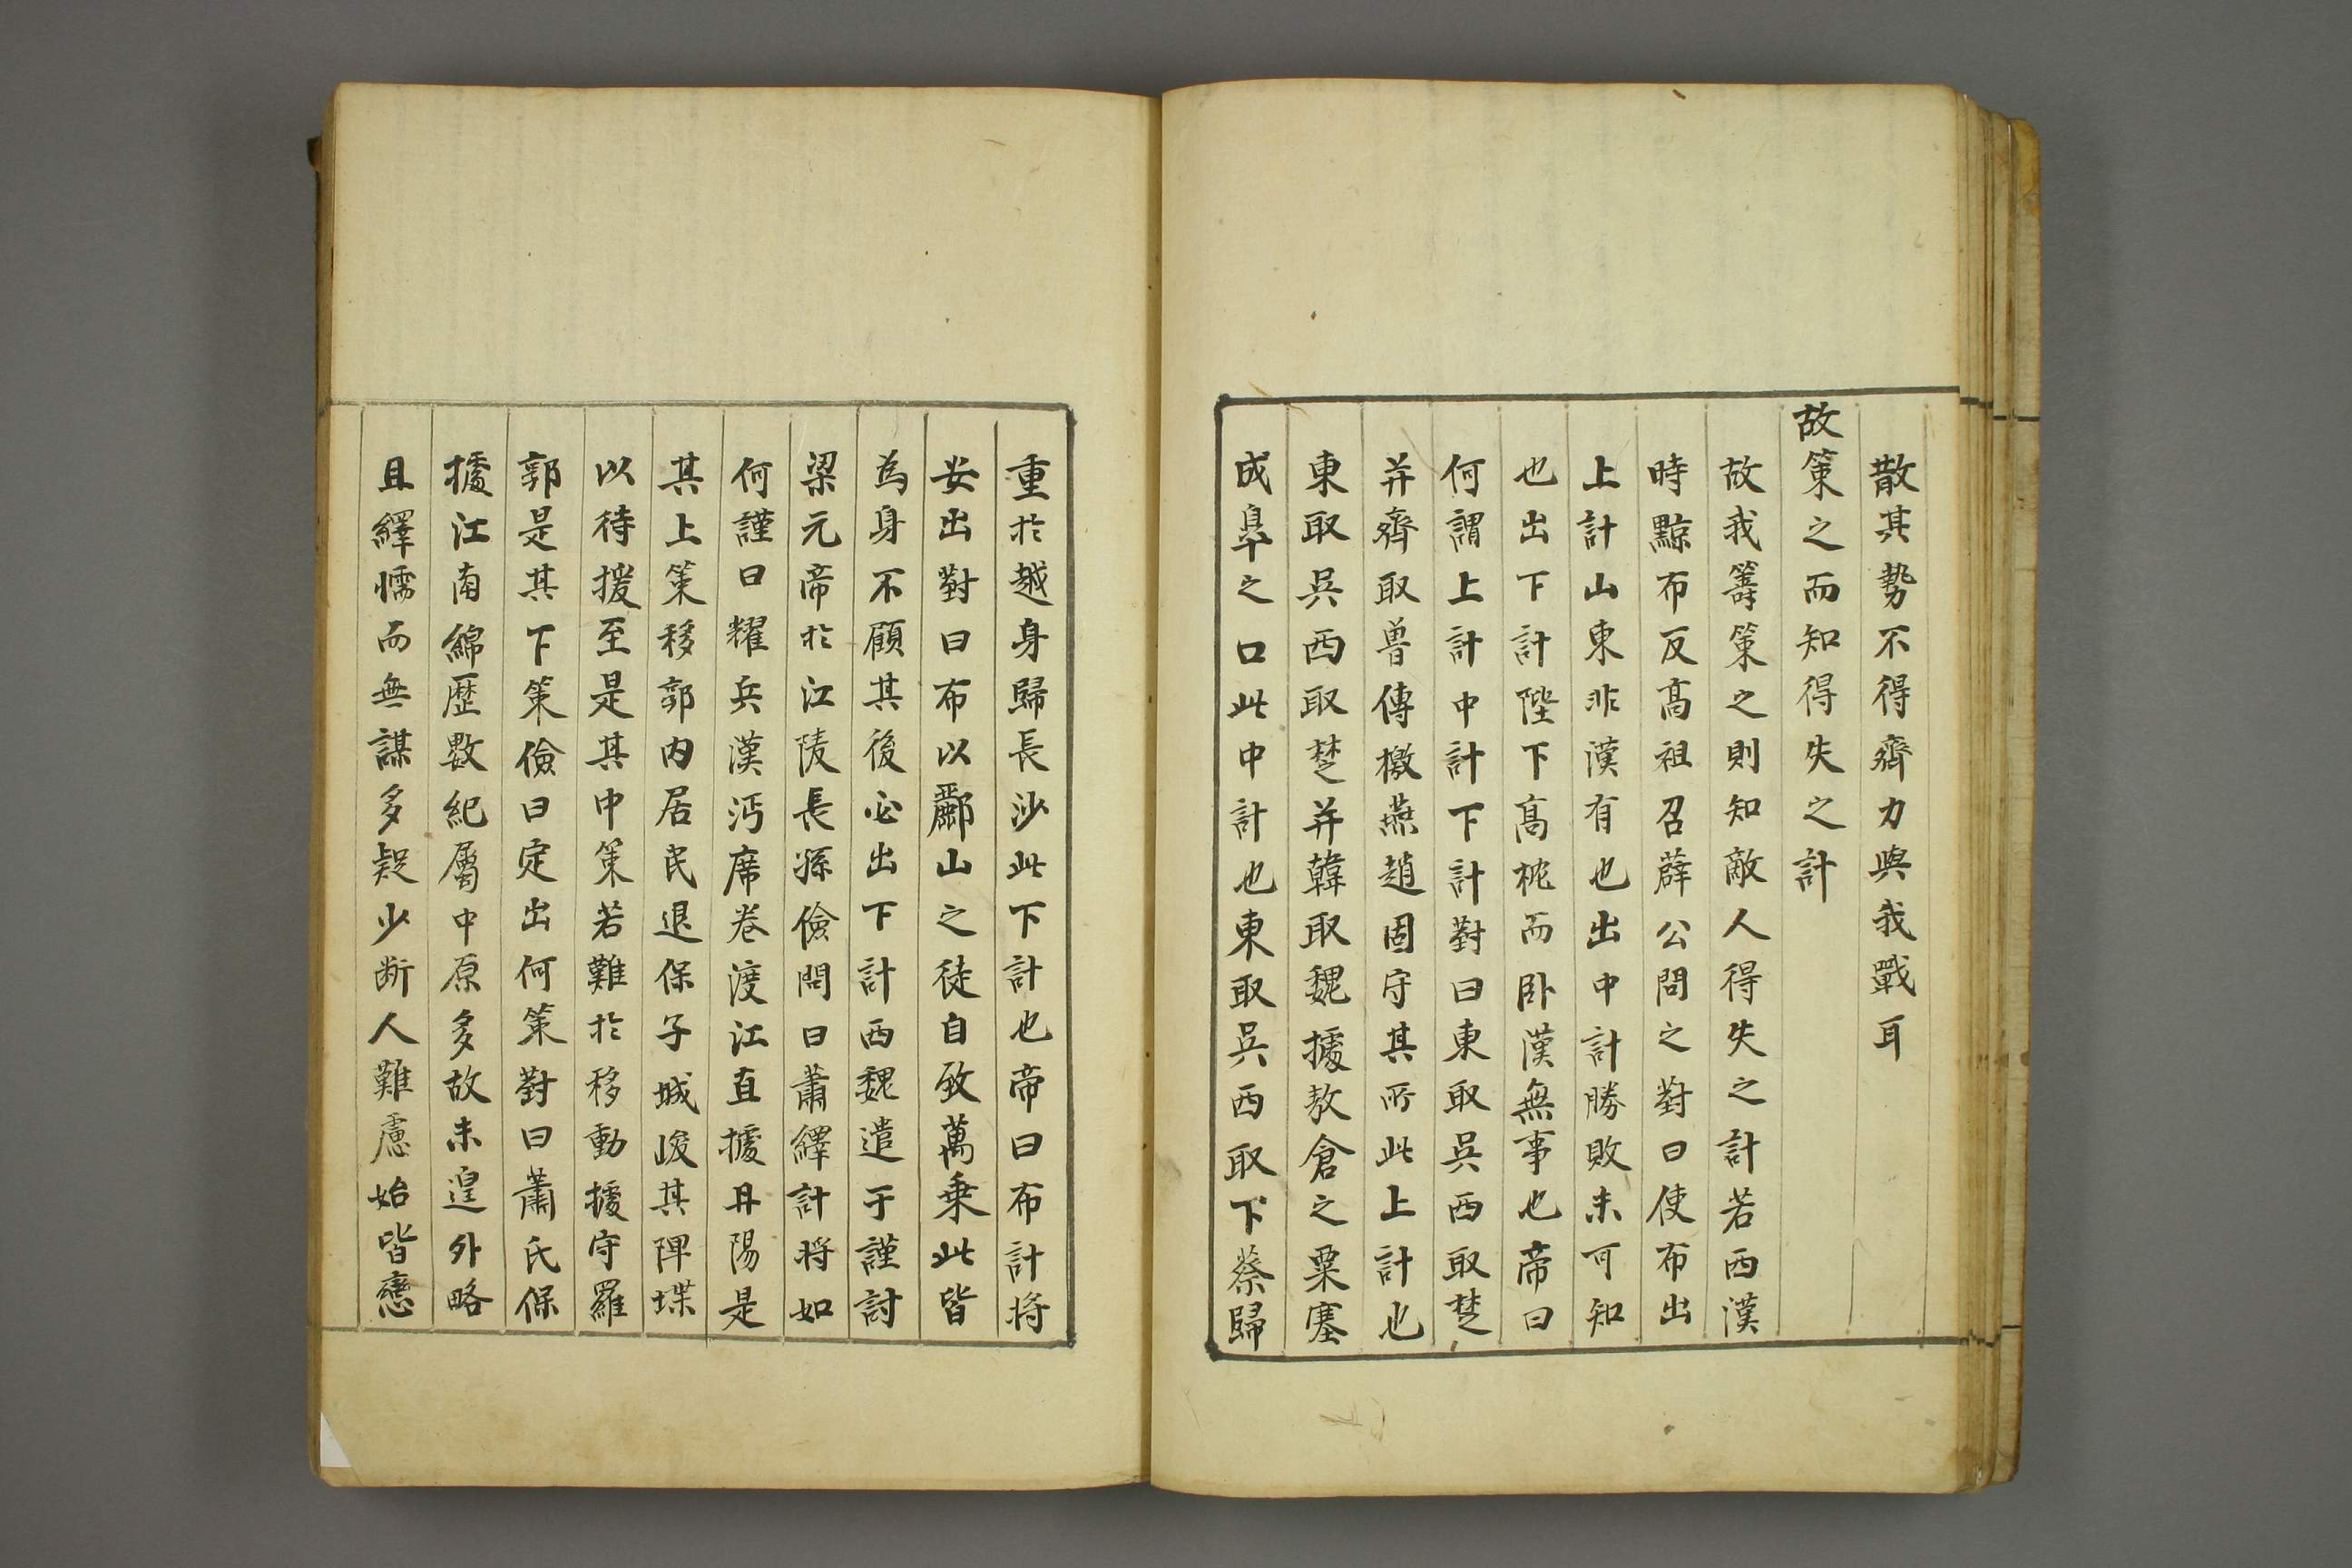 散其勢不得齊力與我戰耳
故策之而知得失之計
故我籌策之則知敵人得失之計若西漢
時黥布反高祖召薛公問之對曰使布出
上計山東非漢有也出中計勝敗未可知
也出下計陛下高枕而卧漢無事也帝曰
何謂上計中計下計對曰東取吳西取楚
并齊取魯傳檄燕趙固守其所此上計也
東取吳西取楚并韓取魏據敖倉之粟塞
成皐之口此中計也東取吳西取下蔡歸
重於越身歸長沙此下計也帝曰布計將
安出對曰布以酈山之徒自致萬乗此皆
為身不顧其後必出下計西魏遣于謹討
梁元帝於江陵長孫儉問曰蕭繹計將如
何謹曰耀兵漢沔席卷渡江直據丹陽是
其上策移郭内居民退保子城峻其陴堞
以待援至是其中策若難於移動據守羅
郭是其下策儉曰定出何策對曰蕭氏保
據江南綿歷數紀屬中原多故未遑外略
且繹懦而無謀多疑少断人難慮始皆戀